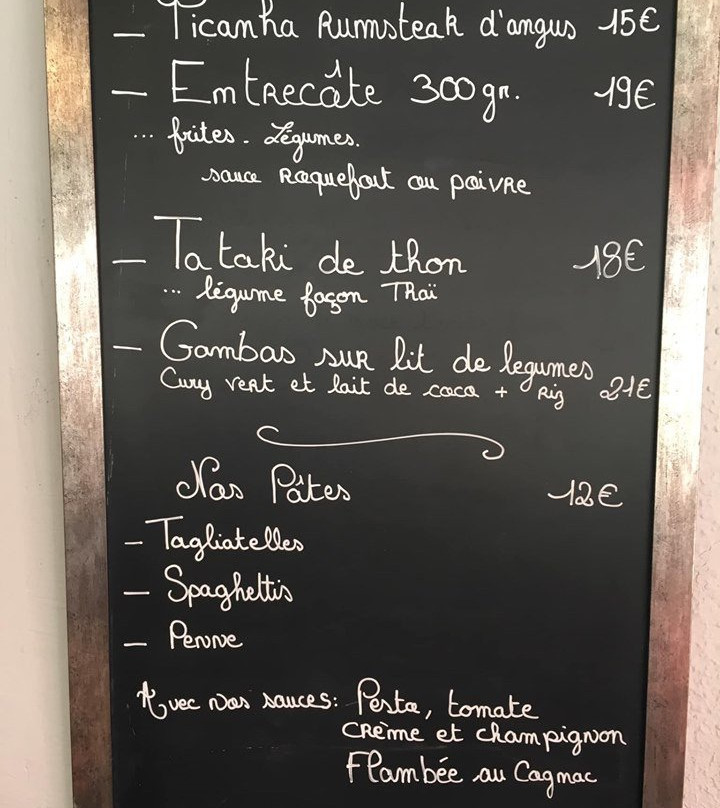 — Picanha Rumsteak d'angus 15€
— Entrecâte 300gr. 19€
... frites. Légumes.
sauce Roquefort ou poivre
— Tataki de thon 18€
... légume façon Thaï
— Gambas sur lit de legumes
Curry vert et lait de coco + Riz 21€
Nos Pâtes 12€
— Tagliatelles
— Spaghettis
— Penne
Avec nos sauces: Pesto, tomate
crème et champignon
Flambée au Cognac